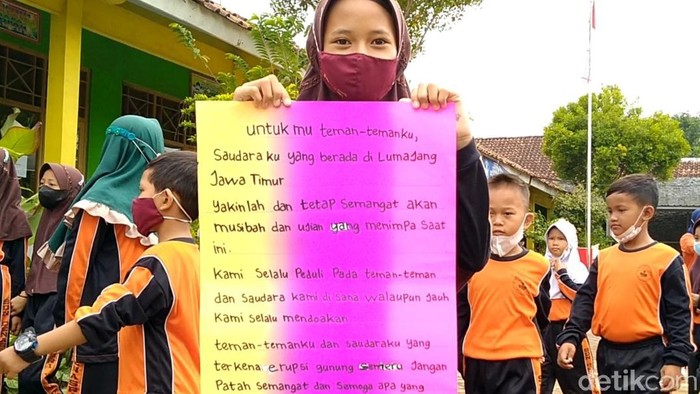 untuk mu teman-temanku,
Saudara ku yang berada di Lumajang
Jawa Timur
Yakinlah dan tetap Semangat akan
musibah dan ujian yang menimpa Saat
ini.
Kami Selalu Peduli Pada teman-teman
dan Saudara kami di sana walaupun Jauh
Kami selalu mendoakan
teman-temanku dan saudaraku yang
terkena erupsi gunung Semeru Jangan
Patah semangat dan Semoga apa yang
detikcom